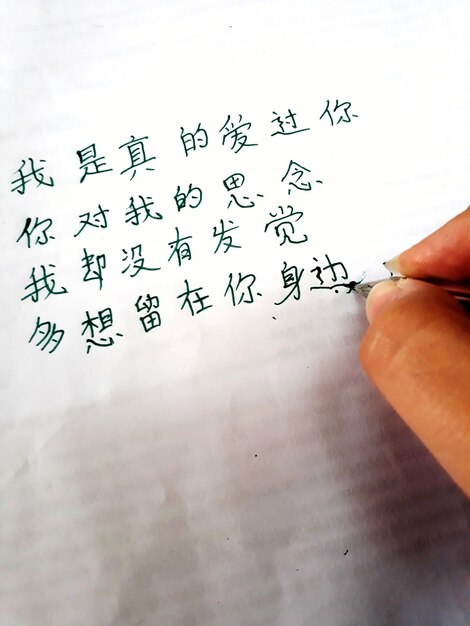 我是真的爱过你
你对我的思念
我却没有发觉
多想留在你身边